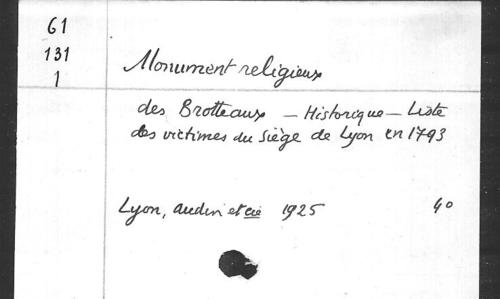 61
131
1
Monument religieux
des Brotteaux — Historique — Liste
des victimes du siège de Lyon en 1793
Lyon, Audin et cie 1925 4o